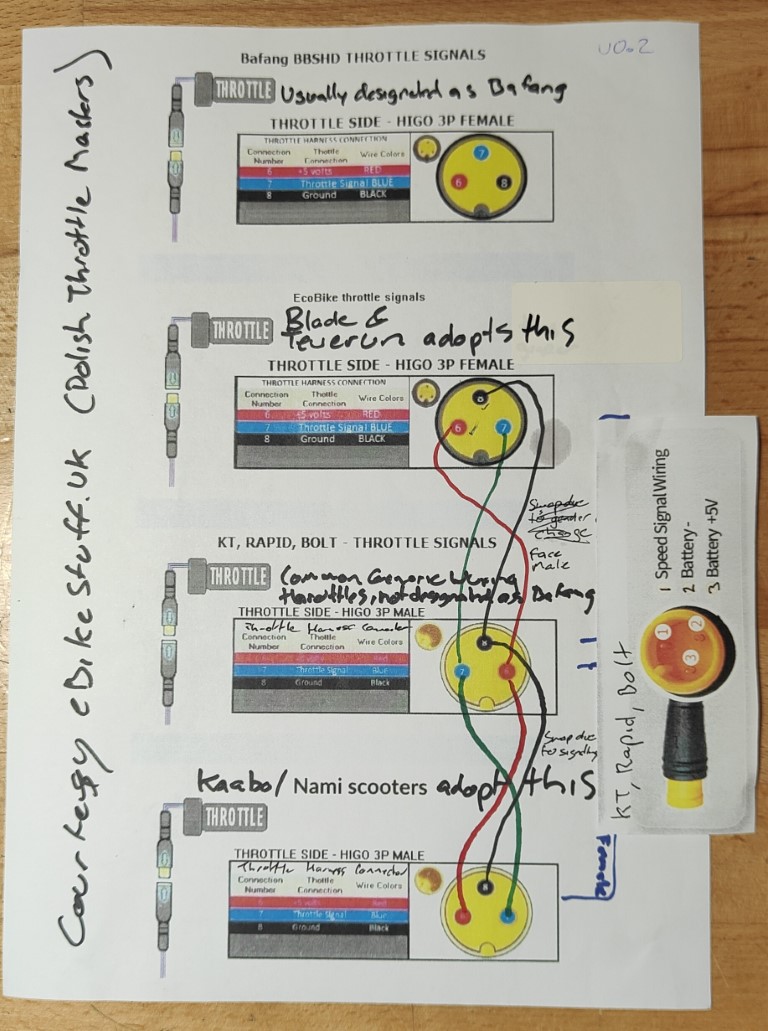 Courtesy eBikeStuff.UK (Polish Throttle Masters)
v0.2
Bafang BBSHD THROTTLE SIGNALS
THROTTLE
Usually designated as Bafang
THROTTLE SIDE - HIGO 3P FEMALE
THROTTLE HARNESS CONNECTION
Connection Number Thottle Connection Wire Colors
6 +5 volts RED
7 Throttle Signal BLUE
8 Ground BLACK
7
6 8
EcoBike throttle signals
THROTTLE
Blade &
Teverun adopts this
THROTTLE SIDE - HIGO 3P FEMALE
THROTTLE HARNESS CONNECTION
Connection Number Thottle Connection Wire Colors
6 +5 volts RED
7 Throttle Signal BLUE
8 Ground BLACK
8
6 7
Swap due
to gender
change
Face
Male
KT, RAPID, BOLT - THROTTLE SIGNALS
THROTTLE
Common Generic Wiring
throttles, not designated as Bafang
THROTTLE SIDE - HIGO 3P MALE
Throttle Harness Connector
Connection Number Thottle Connection Wire Colors
Red
7 Throttle Signal Blue
8 Ground Black
8
7
Swap due
to signalling
Kaabo/ Nami scooters adopt this
THROTTLE
THROTTLE SIDE - HIGO 3P MALE
Throttle Harness Connector
Connection Number Thottle Connection Wire Colors
+5 volts Red
7 Throttle Signal Blue
8 Ground Black
8
7
Female
1 Speed Signal Wiring
2 Battery -
3 Battery +5V
1 2
3
KT, Rapid, Bolt